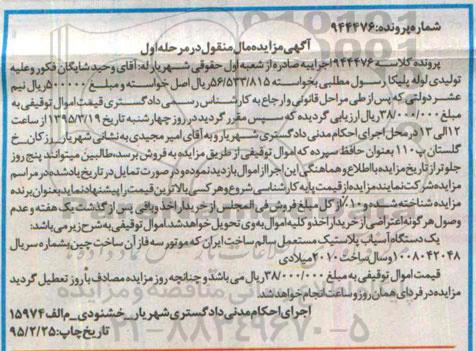 شماره پرونده: ۹۴۴۴۷۶
آگهی مزایده مال منقول در مرحله اول
پرونده کلاسه ۹۴۴۴۷۶ اجراییه صادره از شعبه اول حقوقی شهریار له: آقای وحید شایگان فکور و علیه
تولیدی لوله پلیکا رسول مطلبی بخواسته ۵۶/۵۳۳/۸۱۵ ریال اصل خواسته و مبلغ ۵۰۰۰۰۰ ریال نیم
عشر دولتی که پس از طی مراحل قانونی و ارجاع به کارشناس رسمی دادگستری قیمت اموال توقیفی به
مبلغ ۳۸/۰۰۰/۰۰۰ ریال ارزیابی گردیده که سپس مقرر گردید در روز چهارشنبه تاریخ ۱۳۹۵/۳/۱۹ از ساعت
۱۲ الی ۱۳ در محل اجرای احکام مدنی دادگستری شهریار و به آقای امیر مجیدی به نشانی شهریار رزکان خ
گلستان پ ۱۱۰ بعنوان حافظ سپرده که اموال توقیفی از طریق مزایده به فروش برسد، طالبین میتوانند پنج روز
جلوتر از تاریخ مزایده با اطلاع و هماهنگی این اجرا از اموال بازدید نموده و در صورت تمایل در تاریخ یاد شده در مراسم
مزایده شرکت نمایند مزایده از قیمت پایه کارشناسی شروع و هر کسی بالاترین قیمت را پیشنهاد نماید بعنوان برنده
مزایده شناخته شده و ۱۰٪ از کل مبلغ فروش فی المجلس از خریدار اخذ و باقی پس از گذشت یک هفته و عدم
وصول هرگونه اعتراضی از خریدار اخذ و کلیه اموال به وی تحویل خواهد شد. اموال توقیفی به شرح زیر می باشد:
یک دستگاه آسیاب پلاستیک مستعمل سالم ساخت ایران که موتور سه فاز آن ساخت چین بشماره سریال
۱۰۰۸۰۴۲۰۴۸ و سال ساخت ۲۰۱۰ میلادی
قیمت اموال توقیفی به مبلغ ۳۸/۰۰۰/۰۰۰ ریال می باشد و چنانچه روز مزایده مصادف با روز تعطیل گردید
مزایده در فردای همان روز و ساعت انجام خواهد شد.
اجرای احکام مدنی دادگستری شهریار _ خشنودی _ م الف ۱۵۹۷۴
تاریخ چاپ: ۹۵/۲/۲۵
۰۲۱-۸۸۳۴۹۶۷۰-۵